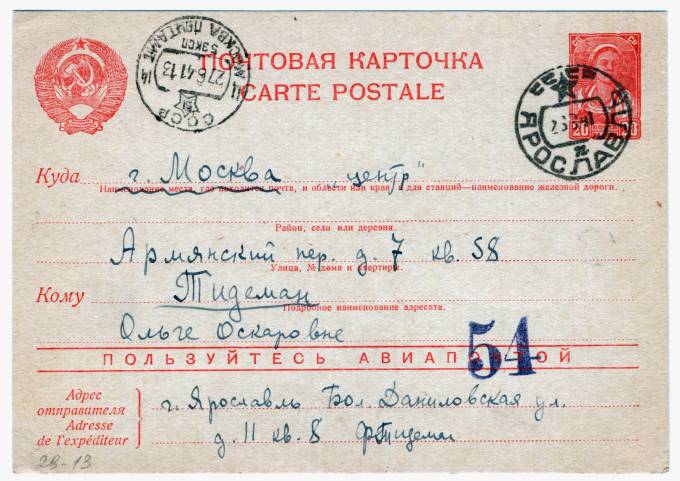 ПОЧТОВАЯ КАРТОЧКА
CARTE POSTALE
МОСКВА ПОЧТАМТ
5 ЭКСП
27.6.41.13
СССР
СССР
20
ЯРОСЛАВЛЬ
Куда г. Москва „центр"
Наименование места, где находится почта, и области или края, для станций—наименование железной дороги.
Район, село или деревня.
Армянский пер. д. 7 кв. 58
Улица, № дома и квартиры.
Кому Тидеман
Подробное наименование адресата.
Ольге Оскаровне
54
ПОЛЬЗУЙТЕСЬ АВИАПОЧТОЙ
Адрес
отправителя
Adresse
de l'expéditeur
г. Ярославль Бол. Даниловская ул.
д. 11 кв. 8 ФТидеман
28-13